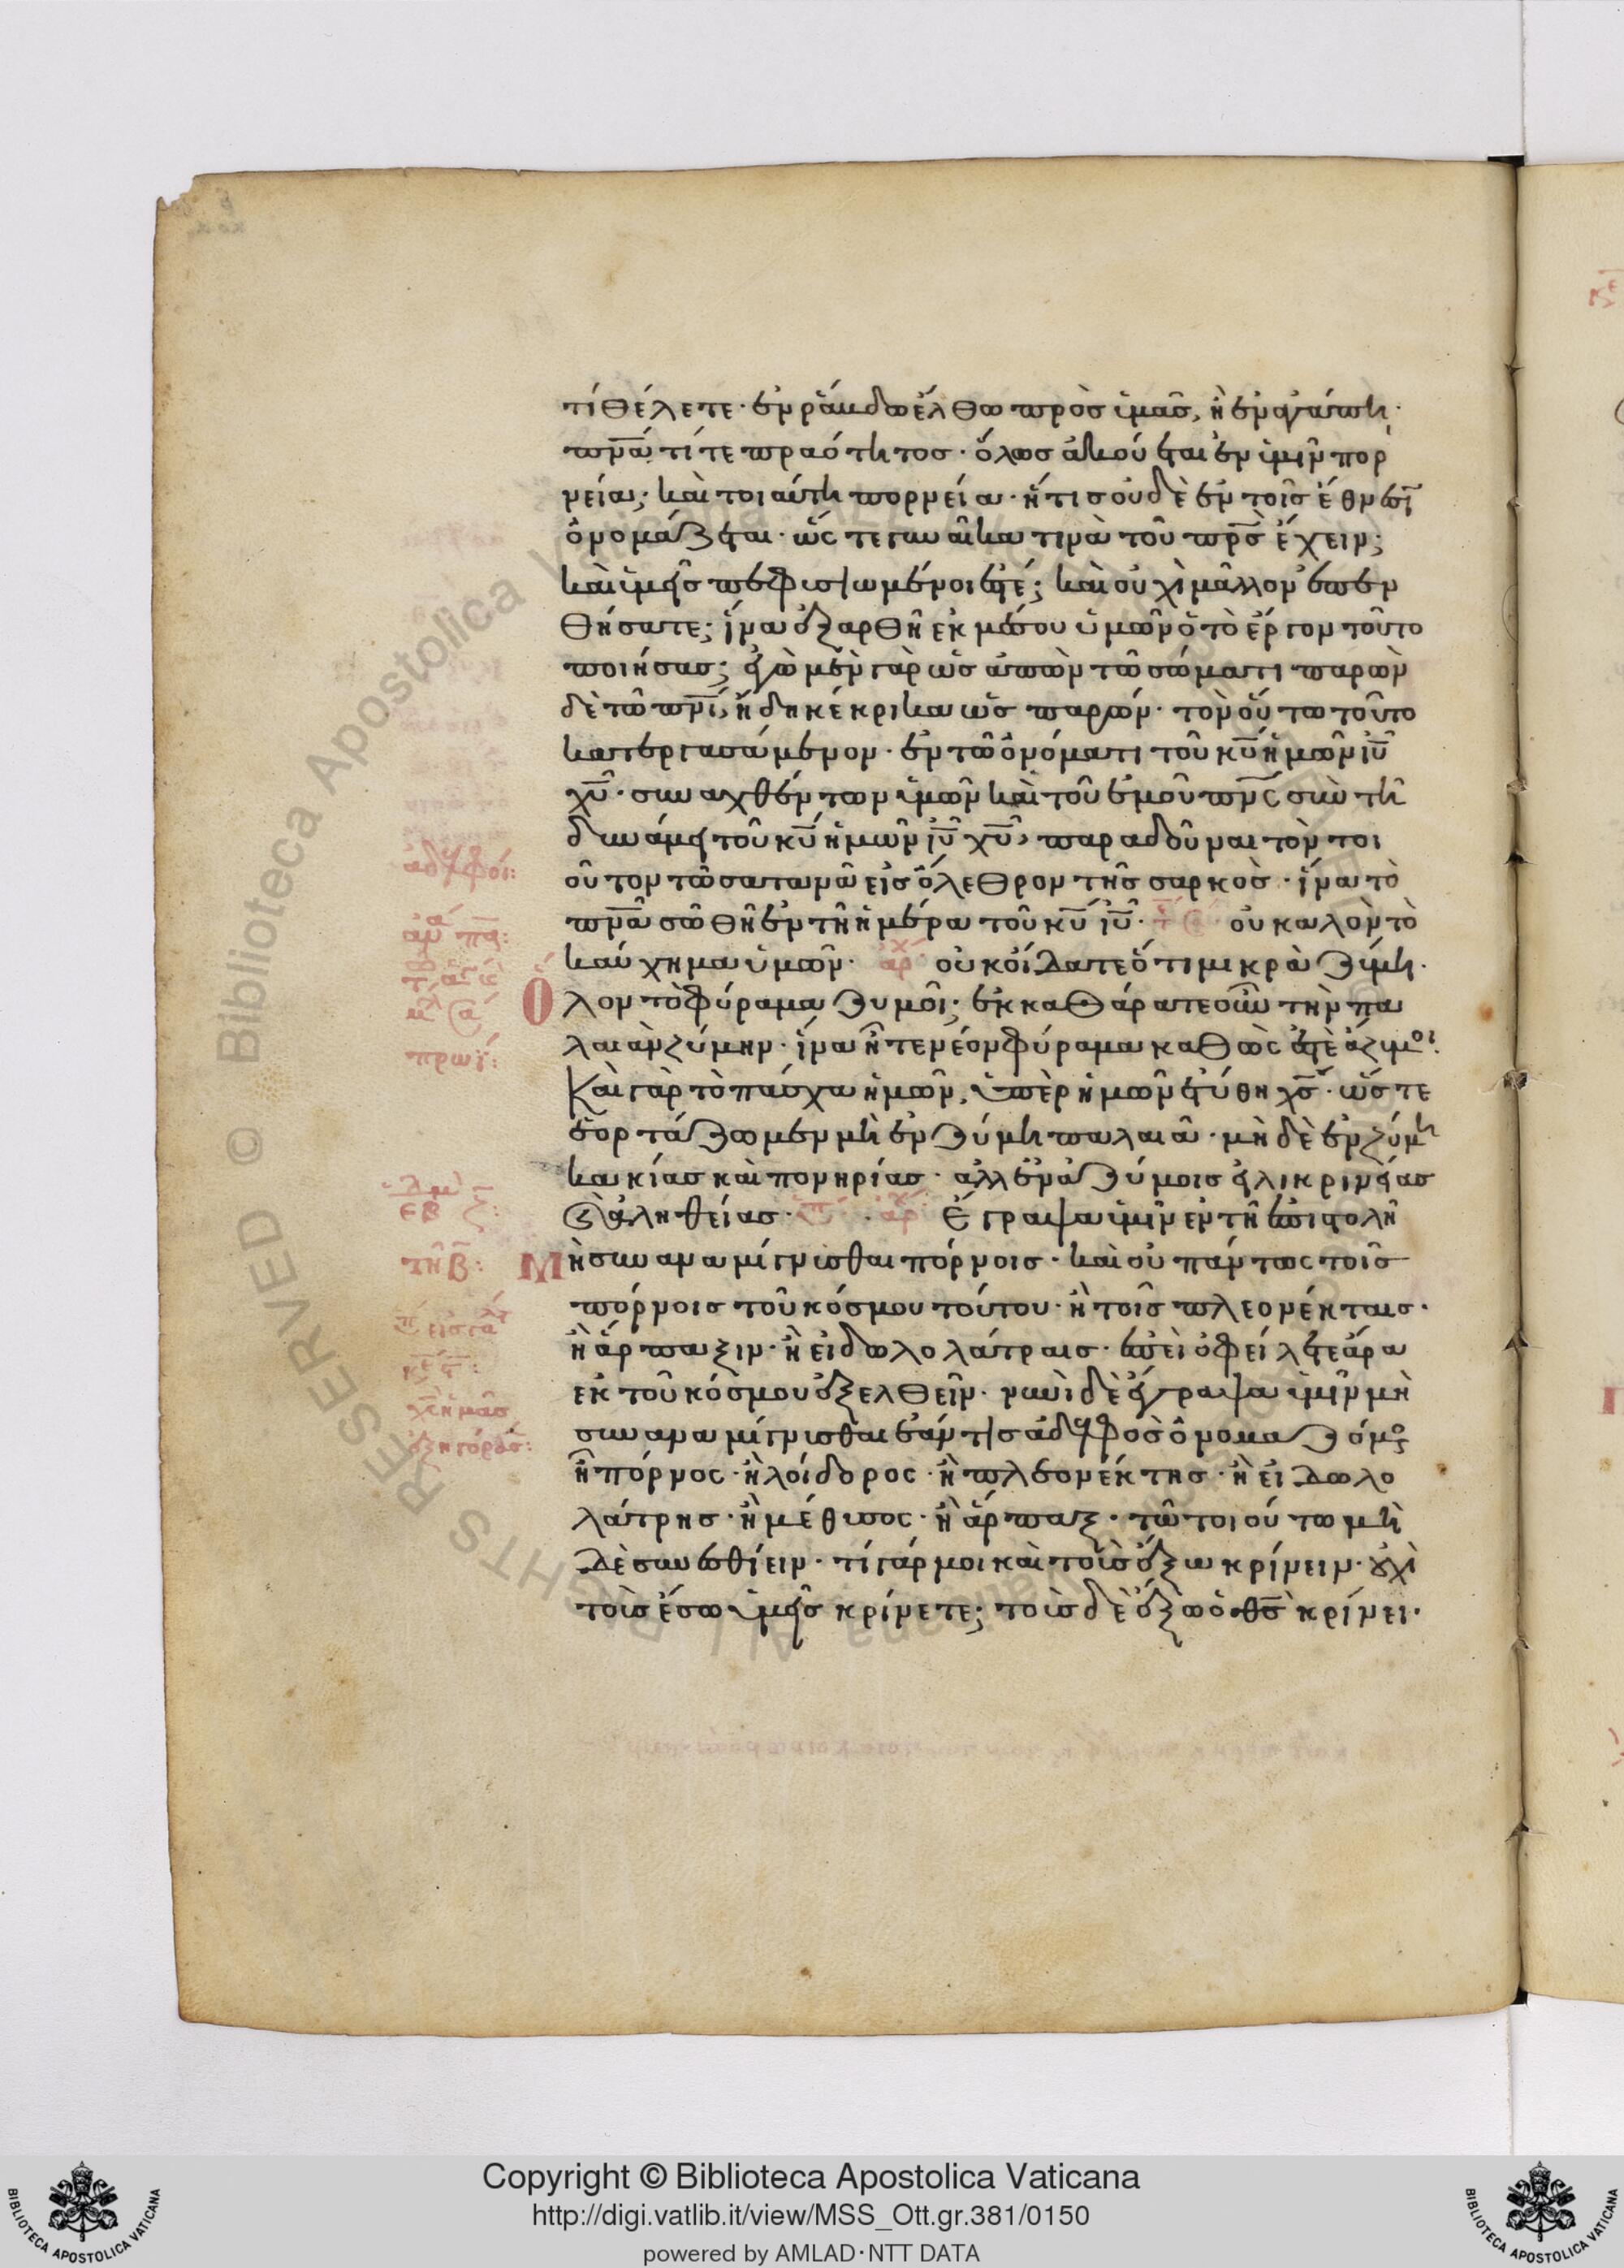 τί θέλετε· ἐν ῥάβδω ἔλθω πρὸσ ὑμᾶσ, ἢ ἐν ἀγάπη·
πν̅ατί τε πραότητοσ· ὅλωσ ἀκούεται ἐν ὑμῖν πορ
νεία; καὶ τοιαύτη πορνεία· ἥτισ οὐδὲ ἐν τοῖσ ἔθνεσῖ
ὀνομάζεται· ὥς τε γυναῖκα τινὰ τοῦ πρ̅σ ἔχειν;
καὶ ὑμεῖσ πεφυσιωμένοι ἐστέ; καὶ οὐχὶ μᾶλλον ἐπεν
θήσατε; ἵνα ἐξαρθῆ ἐκ μέσου ὑμῶν ὁ τὸ ἔργον τοῦτο
ποιήσασ; ἐγὼ μὲν γὰρ ὡσ ἀπὼν τῶ σώματι παρὼν
δὲ τῶ πν̅ι, ἤδη κέκρικα ὡσ παρών· τὸν οὕτω τοῦτο
κατεργασάμενον· ἐν τῶ ὀνόματι τοῦ κ̅υ ἡμῶν ι̅υ
χ̅υ· συναχθέντων ὑμῶν καὶ τοῦ ἐμοῦ πν̅ς σὺν τῆ
δυνάμει τοῦ κ̅υ ἡμῶν ι̅υ χ̅υ, παραδοῦναι τὸν τοι
οῦτον τῶ σατανᾶ εἰσ ὄλεθρον τῆσ σαρκὸσ· ἵνα τὸ
πν̅α σωθῆ ἐν τῆ ἡμέρα τοῦ κ̅υ ι̅υ· οὐ καλὸν τὸ
καύχημα ὑμῶν· ἀρχ οὐκ οἴδατε ὅτι μικρὰ ζύμη·
Ὅλον τὸ φύραμα ζυμοῖ; ἐκκαθάρατε οὖν τὴν πα
λαιὰν ζύμην· ἵνα ἦτε νέον φύραμα καθώς ἐστὲ ἄζυμοι.
Καὶ γὰρ τὸ πάσχα ἡμῶν, ὑπὲρ ἡμῶν ἐτύθη χ̅σ· ὥστε
ἑορτάζωμεν μὴ ἐν ζύμη παλαιᾶ· μὴ δὲ ἐν ζύμη
κακίασ καὶ πονηρίασ· ἀλλ ἐν ἀζύμοισ εἰλικρινείασ
καὶ ἀληθείασ· ἀρχ Ἔγραψα ὑμῖν ἐν τῆ ἐπιστολῆ
Μὴ συναναμίγνυσθαι πόρνοισ· καὶ οὐ πάντως τοῖσ
πόρνοισ τοῦ κόσμου τούτου· ἢ τοῖσ πλεονέκταισ·
ἢ ἅρπαξιν· ἢ εἰδωλολάτραισ· ἐπεὶ ὀφείλετε ἄρα
ἐκ τοῦ κόσμου ἐξελθεῖν· νυνὶ δὲ ἔγραψα ὑμῖν μὴ
συναναμίγνυσθαι ἐάν τισ ἀδελφὸσ ὀνομαζόμενος
ἢ πόρνος· ἢ λοίδορος· ἢ πλεονέκτησ· ἢ εἰδωλο
λάτρησ· ἢ μέθυσος· ἢ ἅρπαξ· τῶ τοιούτω μὴ
δὲ συνεσθίειν· τί γάρ μοι καὶ τοὺσ ἔξω κρίνειν· οὐχὶ
τοὺσ ἔσω ὑμεῖσ κρίνετε; τοὺσ δὲ ἔξω ὁ θ̅σ κρίνει·
ἀδελφοί:
πρωί:
τῆ β̅:
ἐξηγόρασ̅:
Biblioteca Apostolica Vaticana
© ALL RIGHTS RESERVED
Copyright © Biblioteca Apostolica Vaticana
http://digi.vatlib.it/view/MSS_Ott.gr.381/0150
powered by AMLAD·NTT DATA
BIBLIOTECA APOSTOLICA VATICANA
BIBLIOTECA APOSTOLICA VATICANA